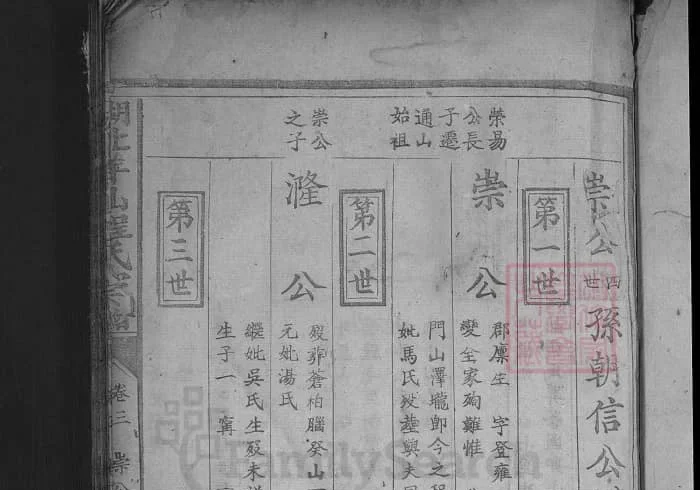 崇公四世孫朝信公
第一世
榮易公長子遷通山始祖
崇公
郡廩生 字登雍
變全家殉難惟
門山澤壠卽今之程
妣馬氏歿塟與夫同
第二世
崇公之子
漋公
歿葬蒼柏腦癸山
元妣湯氏
繼妣吳氏生歿未詳
生子一 寗
第三世
卷三
崇公
FamilySearch